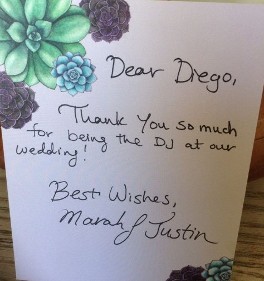 Dear Diego,
Thank You so much
for being the DJ at our
wedding!
Best Wishes,
Marah & Justin